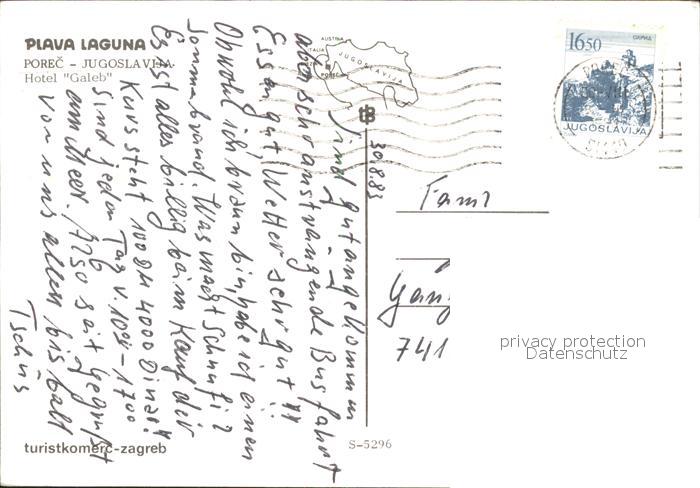 PLAVA LAGUNA
POREČ – JUGOSLAVIJA
Hotel "Galeb"
AUSTRIA
ITALIA
JUGOSLAVIJA
POREČ
1650
OMPKA
JUGOSLAVIJA
30.8.83
Sind gut angekommen
aber sehr anstrengende Busfahrt
Essen gut, Wetter sehr gut!!
Obwohl ich braun bin, habe ich einen
Sonnenbrand. Was macht Schnufi?
Es ist alles billig beim Kauf der
Kurs steht 100 DM 4000 Dinar!
Sind jeden Tag v. 10 - 1700
am Meer. Also seit gegrüßt
von uns allen bis balt
Tschüs
Fam
Gän
741
privacy protection
Datenschutz
turistkomerc-zagreb
S-5296